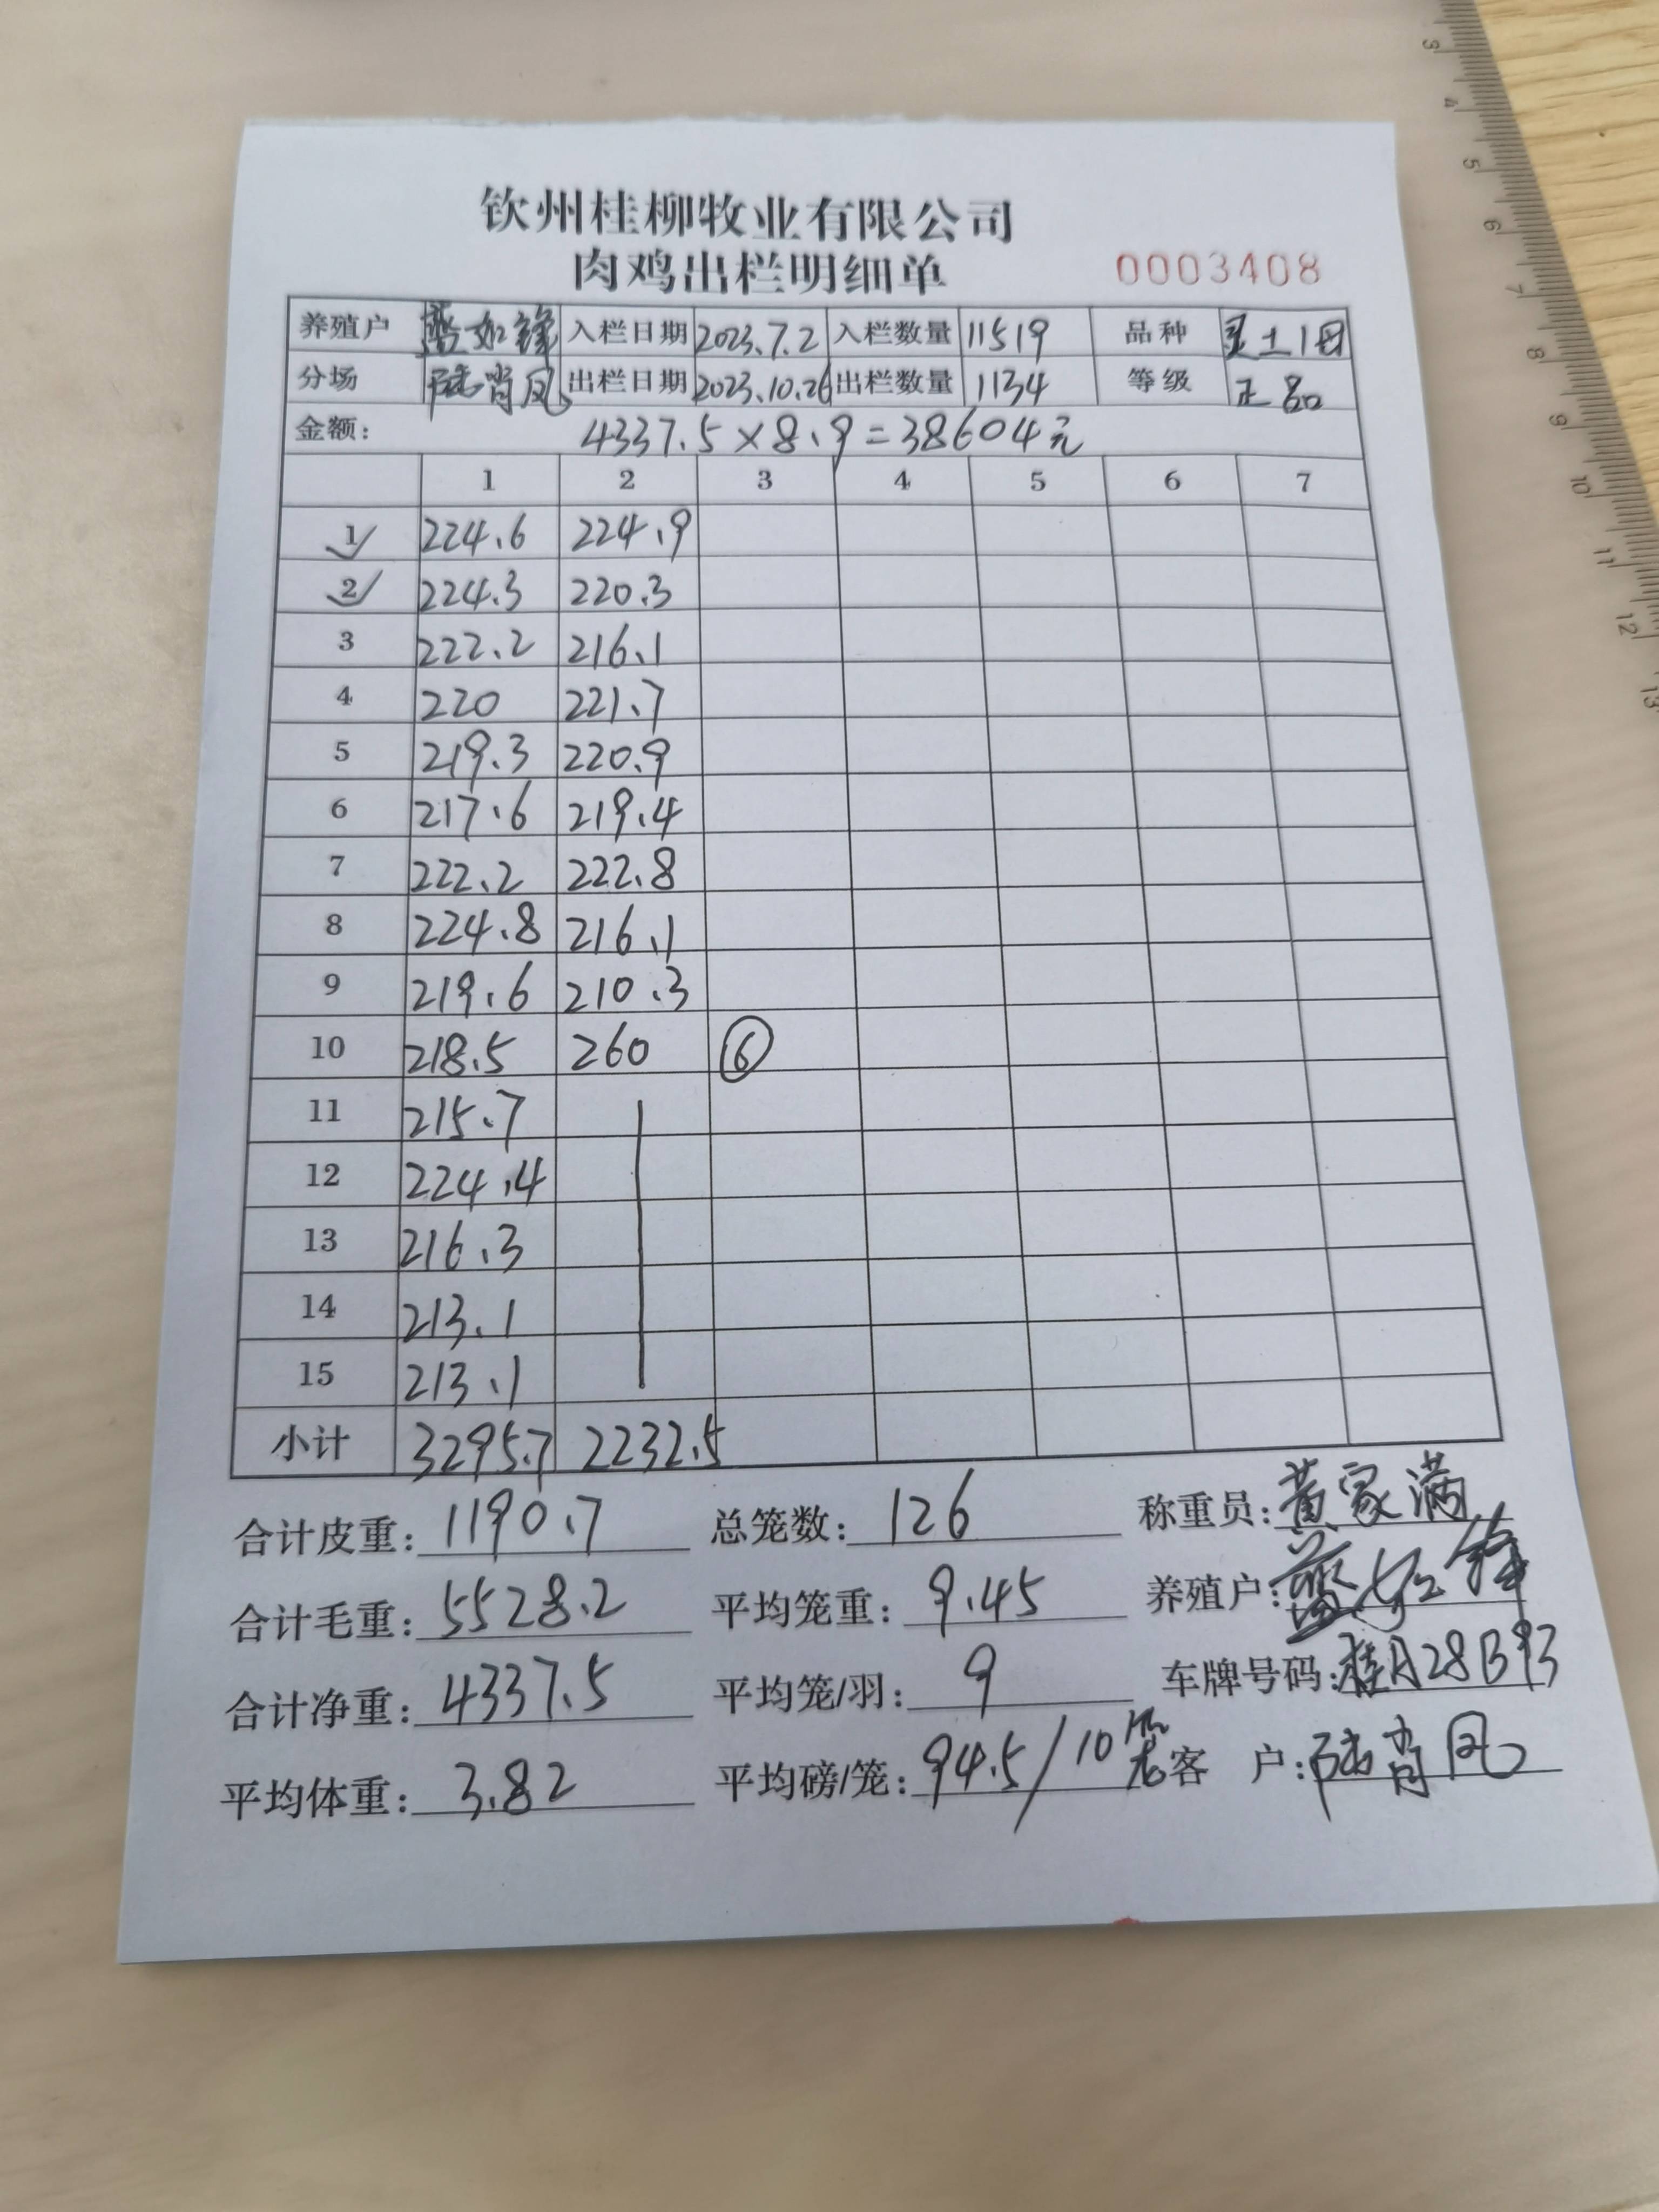 钦州桂柳牧业有限公司
肉鸡出栏明细单 0003408
养殖户 蓝如锋 入栏日期 2023.7.2 入栏数量 11519 品种 灵土1母
分场 陆肖凤 出栏日期 2023.10.26 出栏数量 1134 等级 正品
金额: 4337.5×8.9=38604元
1 2 3 4 5 6 7
1 224.6 224.9
2 224.3 220.3
3 222.2 216.1
4 220 221.7
5 219.3 220.9
6 217.6 219.4
7 222.2 222.8
8 224.8 216.1
9 219.6 210.3
10 218.5 260 ⑥
11 215.7
12 224.4
13 216.3
14 213.1
15 213.1
小计 3295.7 2232.5
合计皮重: 1190.7 总笼数: 126 称重员: 黄家满
合计毛重: 5528.2 平均笼重: 9.45 养殖户: 蓝如锋
合计净重: 4337.5 平均笼/羽: 9 车牌号码: 桂A28B93
平均体重: 3.82 平均磅/笼: 94.5/10 客 户: 陆肖凤
3 4 5 6 7 8 9 10 11 12 13